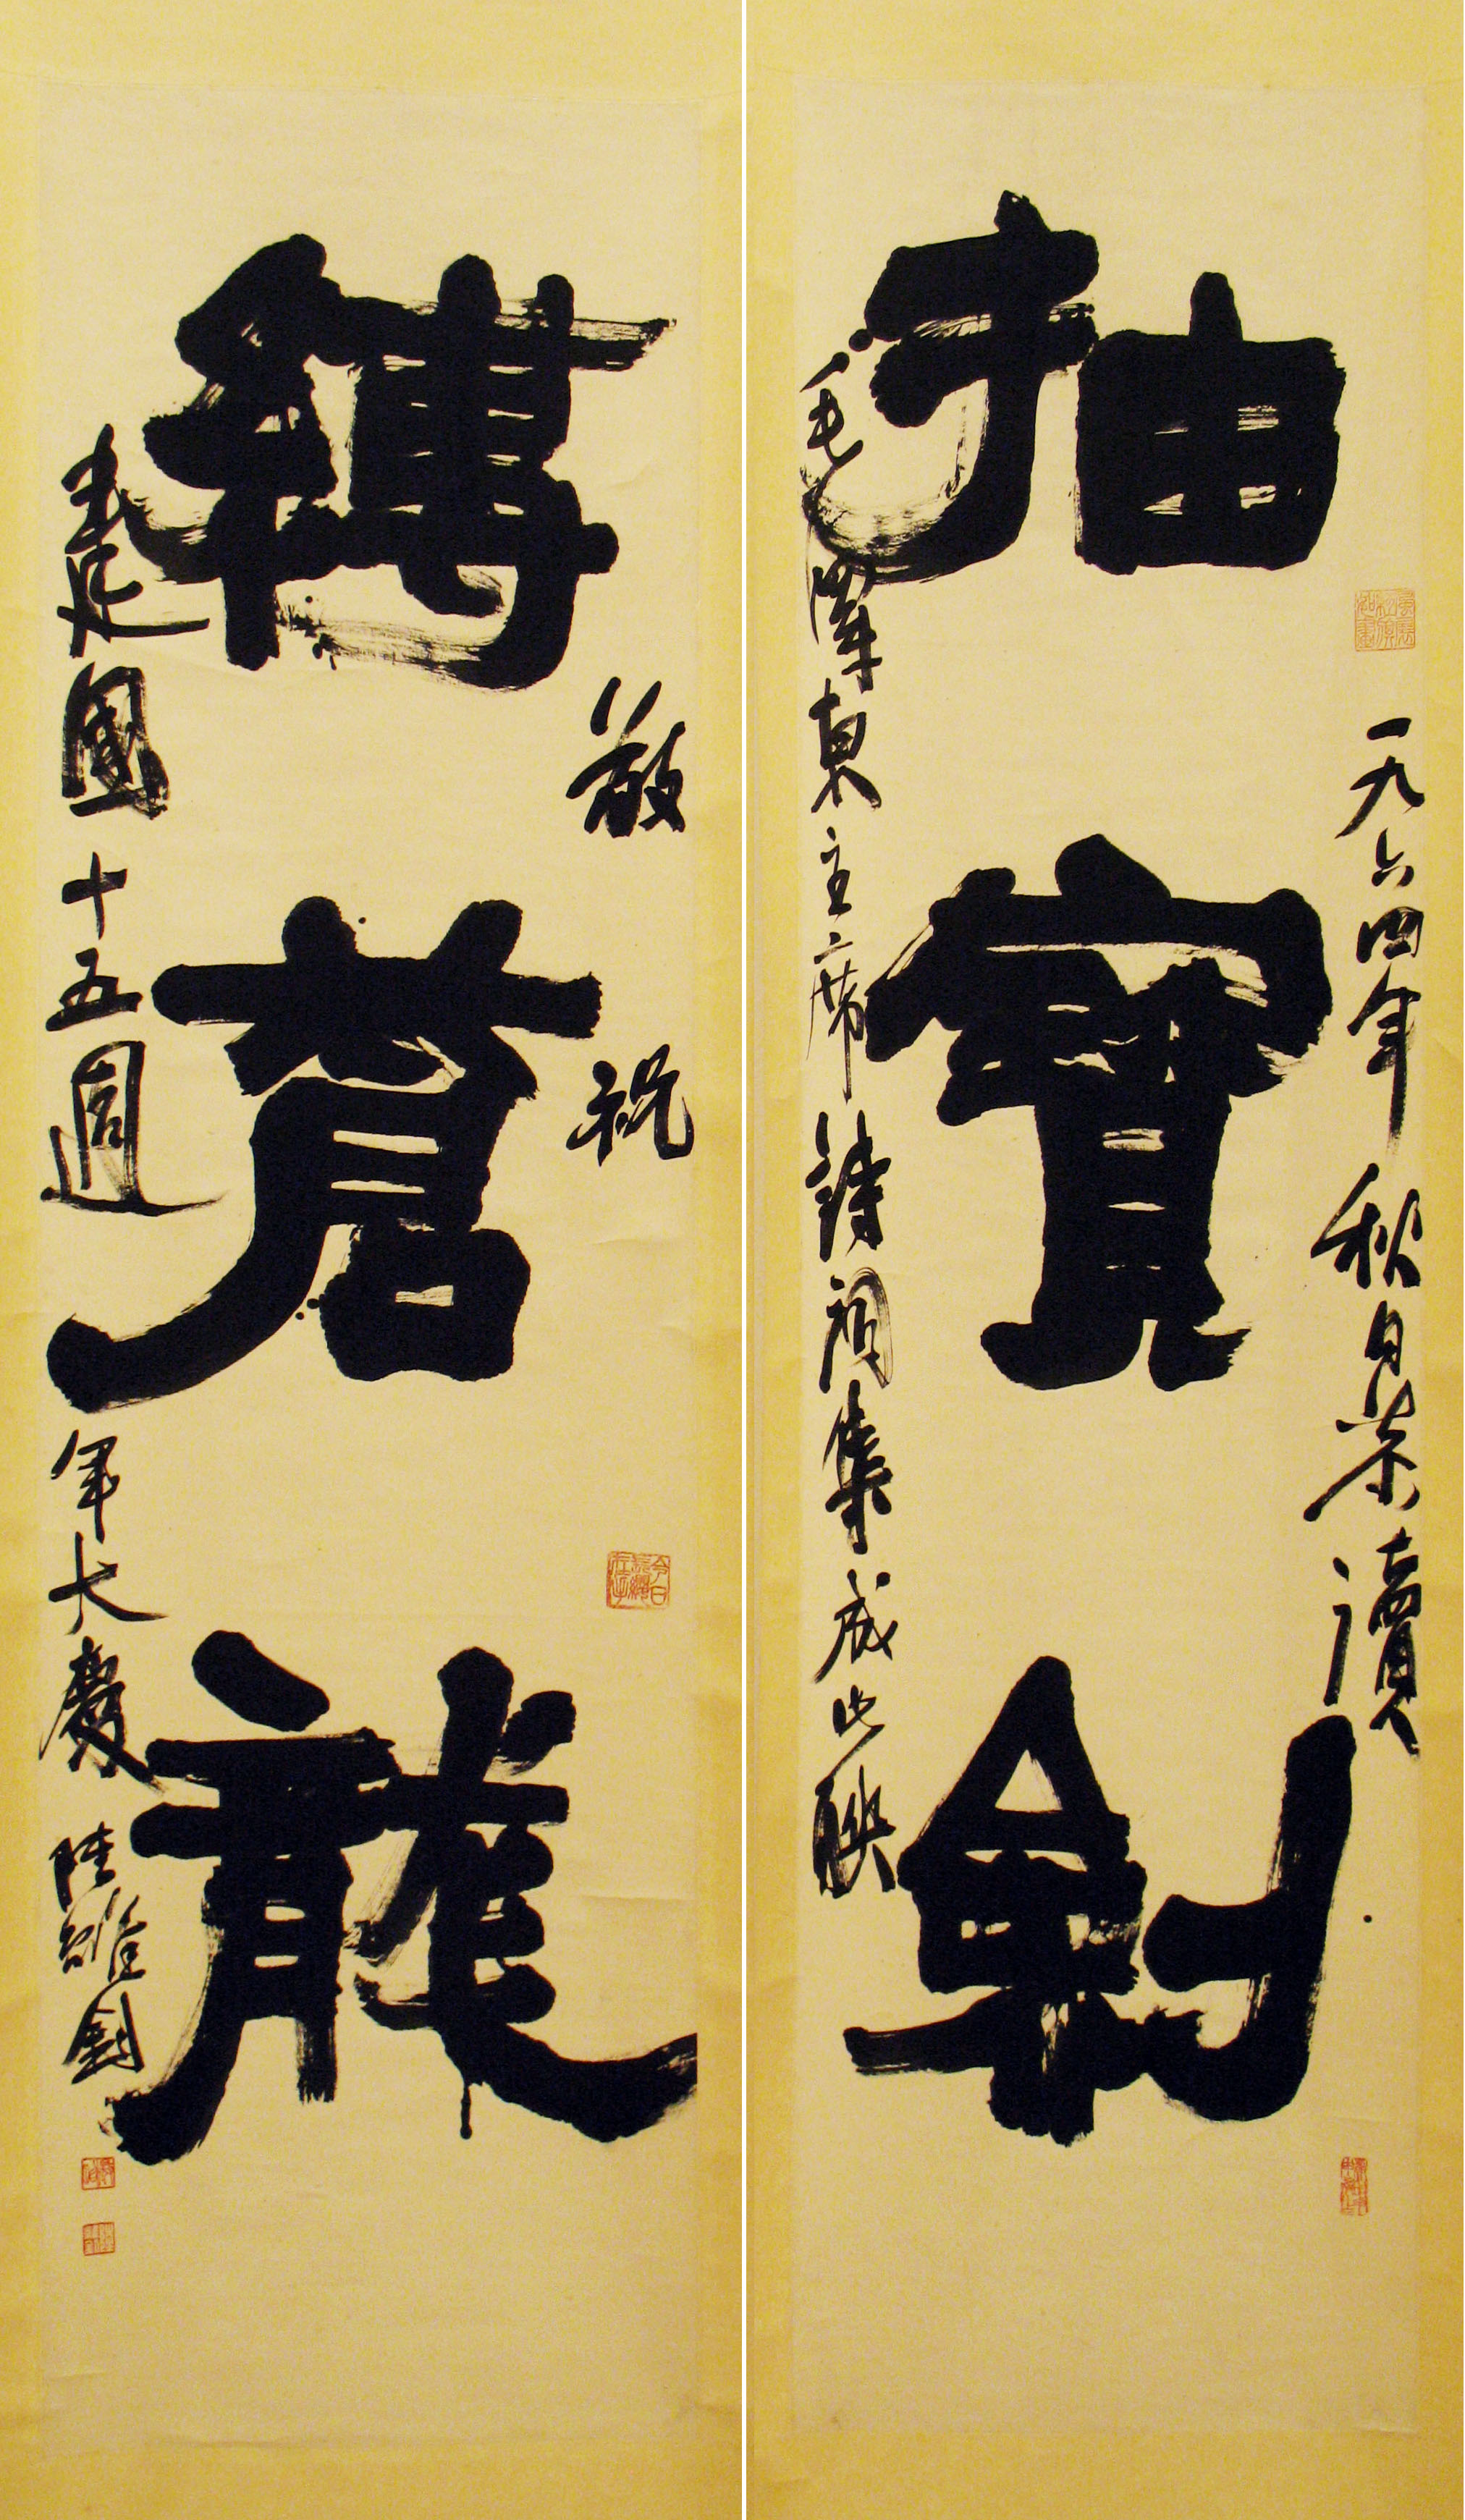 抽寶劍
一九六四年秋日荣讀
毛澤東主席詩詞集成此联
縛蒼龍
敬祝
建國十五週年大慶 陸維釗
今日長纓在手